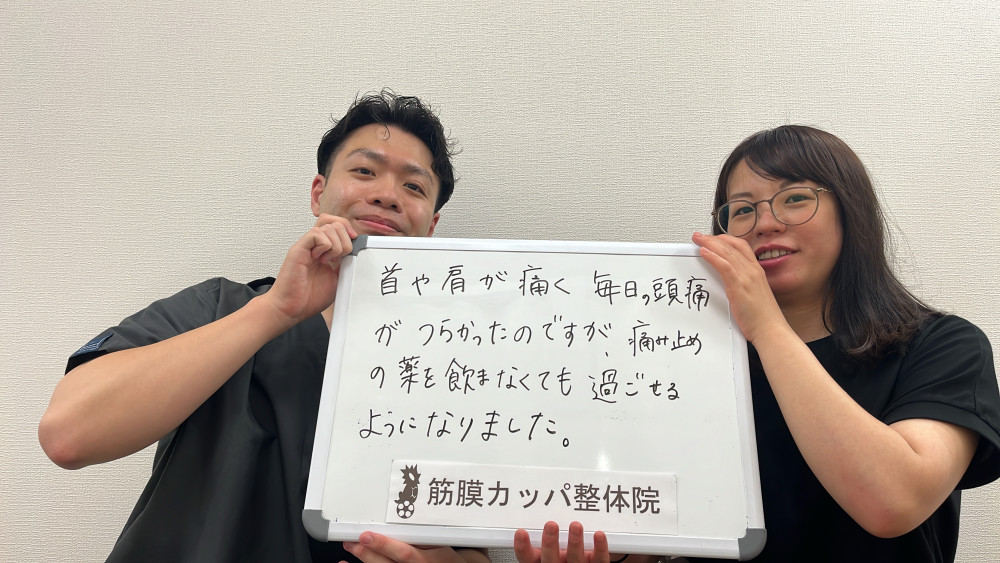 首や肩が痛く 毎日の頭痛
がつらかったのですが、痛み止め
の薬を飲まなくても過ごせる
ようになりました。
筋膜カッパ整体院